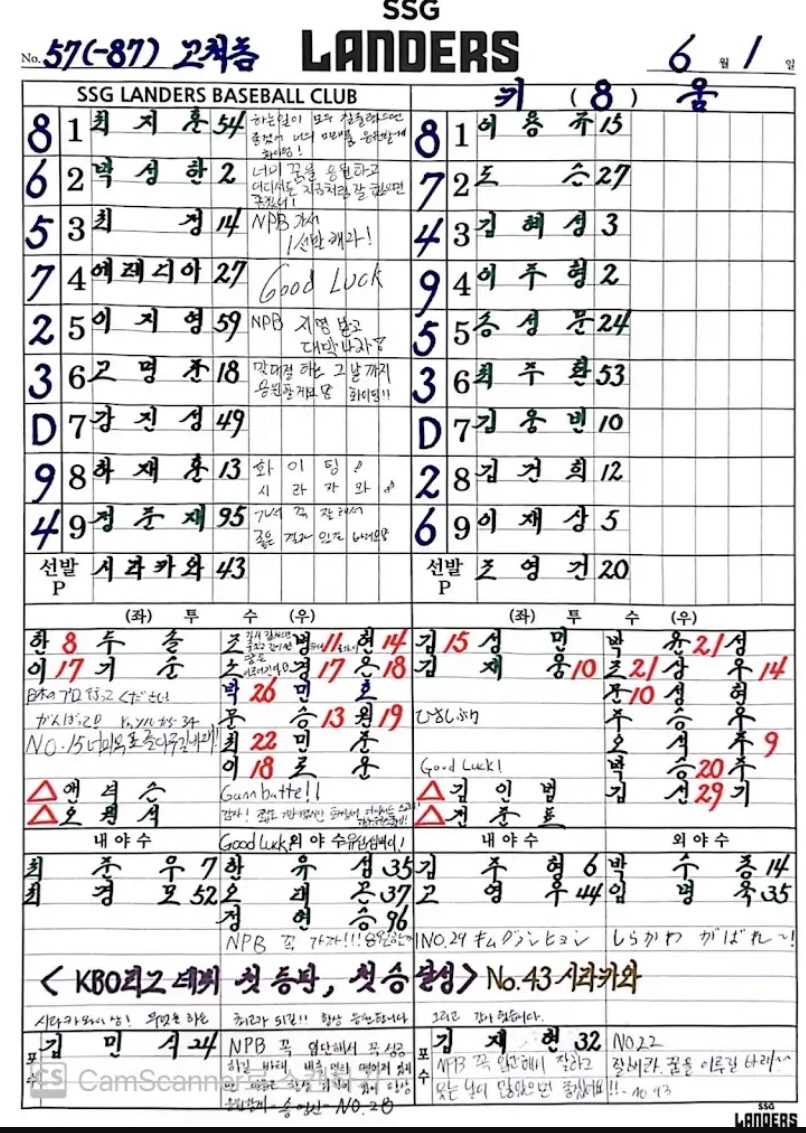 SSG
LANDERS
No. 57(-87) 고척돔
6 월 1 일
SSG LANDERS BASEBALL CLUB
키 (8) 움
8 1 최지훈 54
하는일이 모두 잘 풀렸으면
화이팅!
6 2 박성한 2
너의 꿈을 응원하고
어디서든 지금처럼 잘 했으면
좋겠어!
5 3 최정 14
NPB 가서
1선발 해라!
7 4 에레디아 27
Good Luck
2 5 이지영 59
NPB 지명 받고
대박나자!
3 6 고명준 18
맞대결 하는 그날까지
응원할게요! 화이팅!!
D 7 강진성 49
9 8 하재훈 13
화이팅!
시라카와!
4 9 정준재 95
가서 꼭 잘해서
좋은 결과
선발 P 시라카와 43
8 1 이용규 15
7 2 도슨 27
4 3 김혜성 3
9 4 이주형 2
5 5 송성문 24
3 6 최주환 53
D 7 김웅빈 10
2 8 김건희 12
6 9 이재상 5
선발 P 조영건 20
(좌) 투 수 (우)
한두솔 8
이기순 17
がんばって!
No.15 너의 목표
△ 앤더슨
△ 오원석
조병현 11 14
노경은 17 18
박민호 26
문승원 13 19
최민준 22
이로운 18
Gambatte!!
Good Luck!
(좌) 투 수 (우)
김성민 15
김재웅 10
Good Luck!
△ 김인범
△ 전준표
박윤성 21
조상우 21 14
문성현 10
주승우
오석주 9
박승주 20
김선기 29
내야수
최준우 7
최경모 52
외야수
한유섬 35
오태곤 37
정현승 96
NPB 꼭 가자!!!
내야수
김주형 6
고영우 44
NO.29 キムグァンヒョン
외야수
박수종 14
임병욱 35
しらかわ がばれ~!
< KBO리그 데뷔 첫 등판, 첫 승 달성 > No.43 시라카와
시라카와 상! 무엇을 하든 최고가 되길!! 항상 응원합니다
포수
김민식 24
NPB 꼭 입단해서 꼭 성공
하길 바래
송영진 - NO.28
포수
김재현 32
NPB 꼭 입단해서 잘하고
웃는 날이 많았으면 좋겠어요!! - NO 43
NO.22
잘해라. 꿈을 이루길 바래~
CS CamScanner
SSG
LANDERS